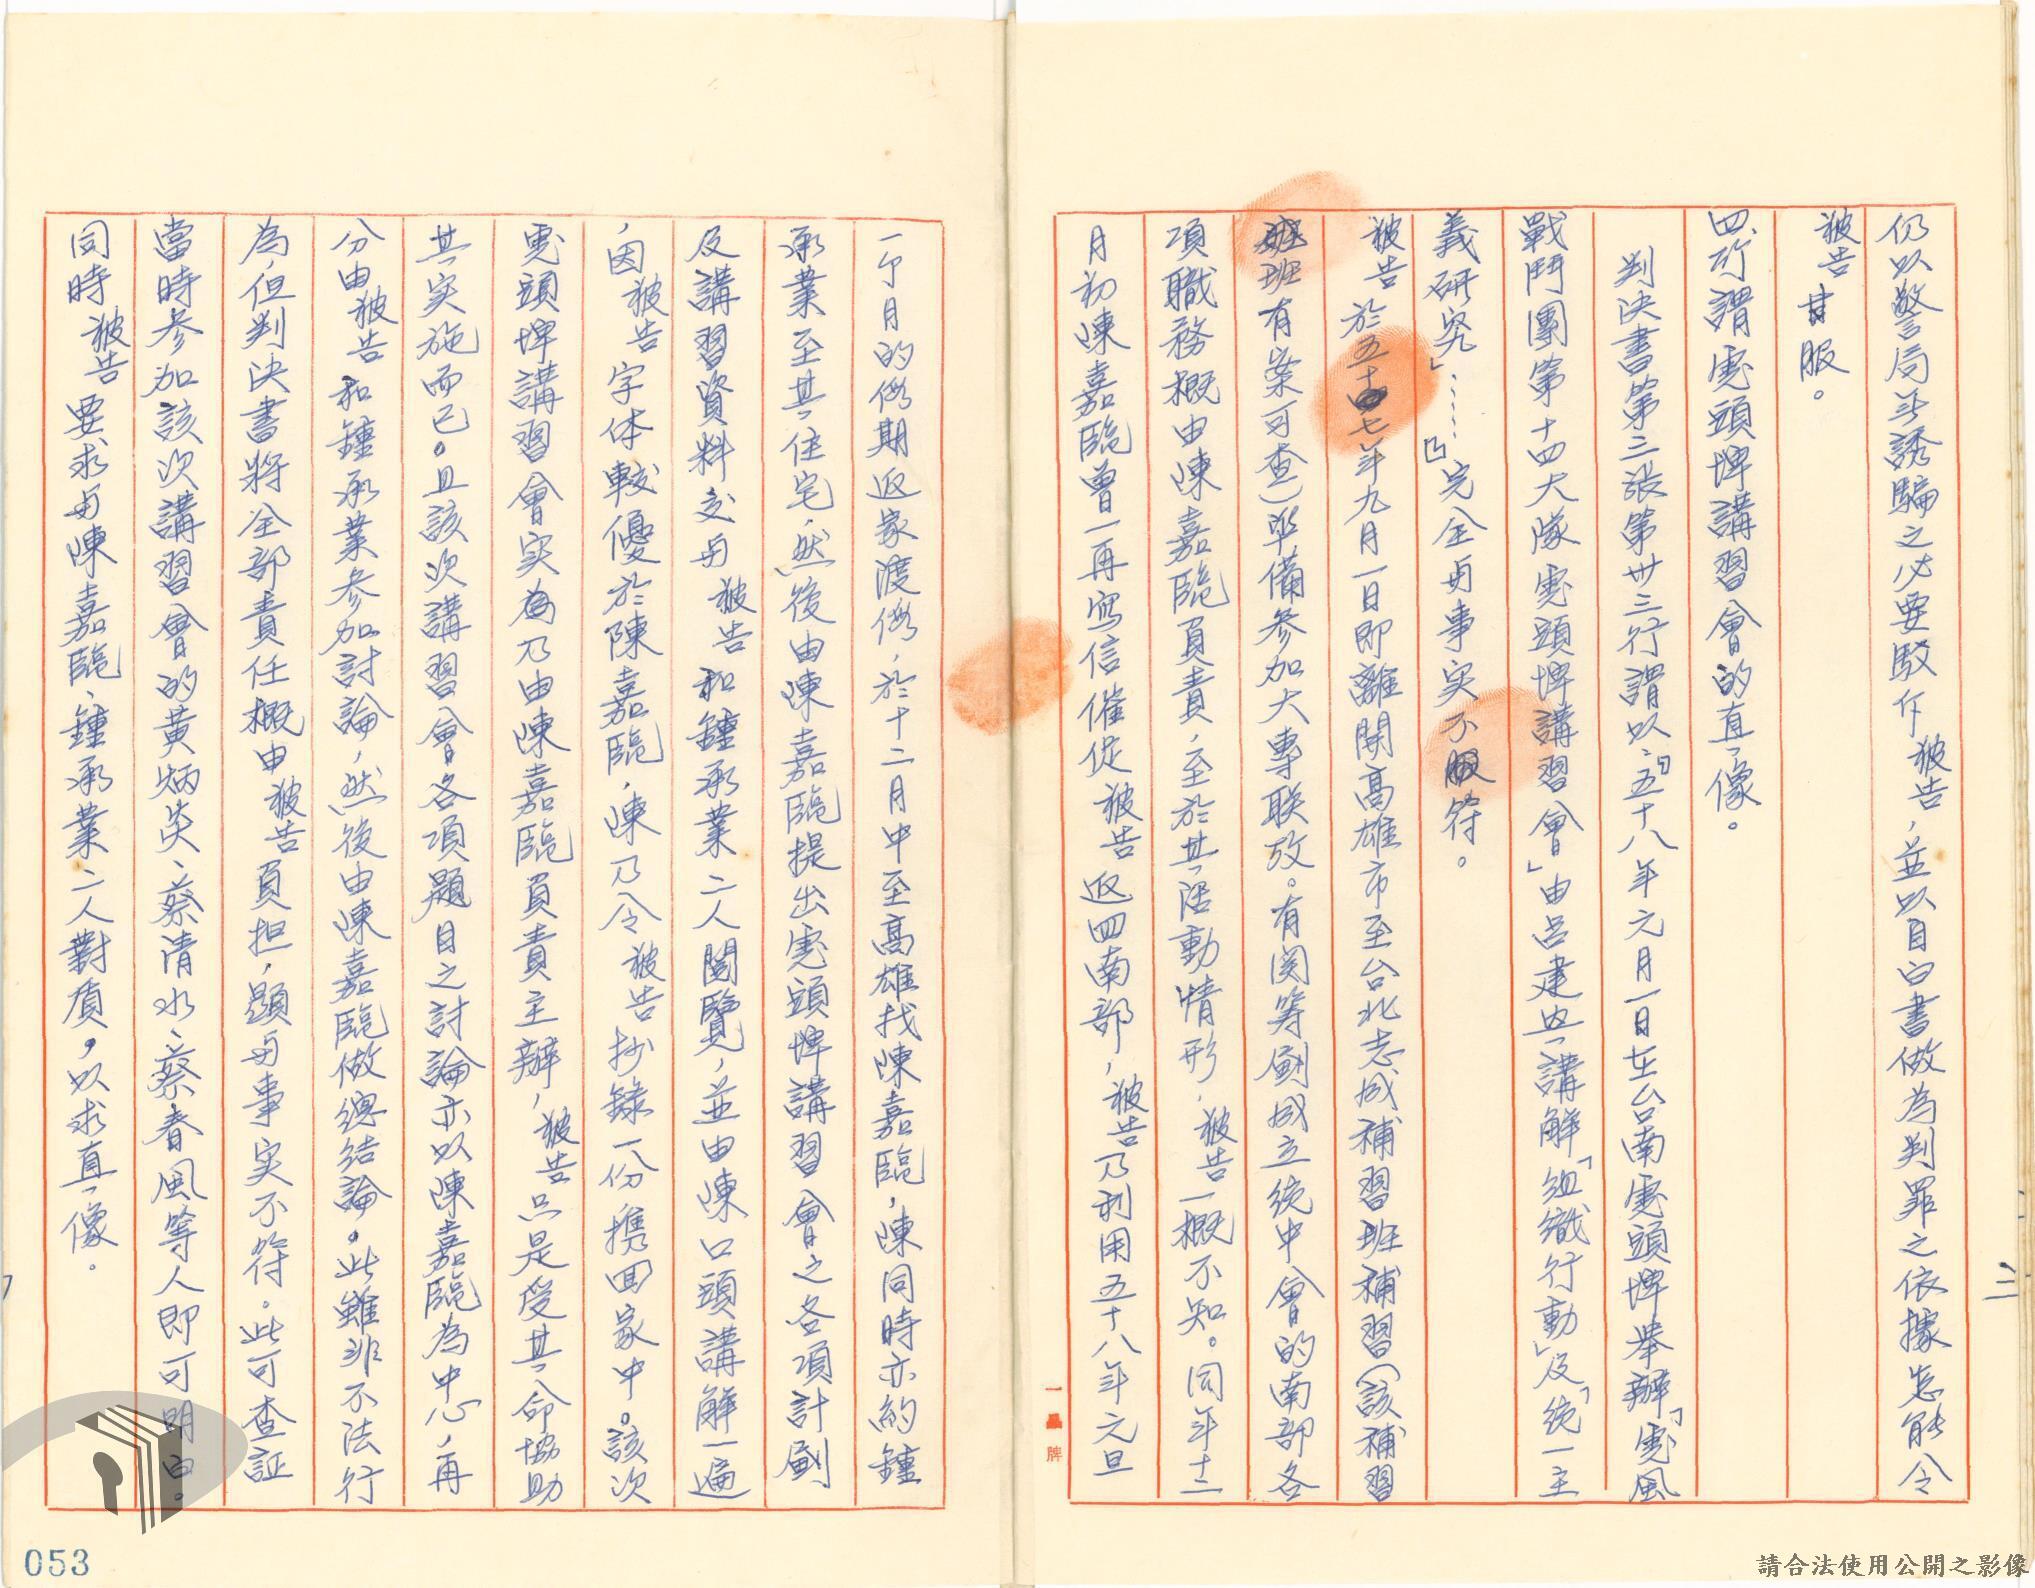 仍以警局非誘騙之必要駁斥被告，並以自白書做為判罪之依據怎能令
被告甘服。
四、所謂虎頭埤講習會的真像。
判決書第三張第卅三行謂以：「五十八年元月一日在台南虎頭埤舉辦「虎風
戰鬥團第十四大隊虎頭埤講習會」由呂建興講解「組織行動」及「統一主
義研究」……」完全與事実不符。
被告於五十七年九月一日即離開高雄市至台北志成補習班補習（該補習
班有案可查）準備參加大專联攷。有関籌劃成立統中會的南部各
項職務概由陳嘉臨負責，至於其活動情形，被告一概不知。同年十二
月初陳嘉臨曾一再寫信催促被告返回南部，被告乃利用五十八年元旦
一个月的假期返家渡假，於十二月中至高雄找陳嘉臨，陳同時亦約鍾
承業至其住宅，然後由陳嘉臨提出虎頭埤講習會之各項計劃
及講習資料交與被告和鍾承業二人閱覽，並由陳口頭講解一遍
，因被告字体較優於陳嘉臨，陳乃令被告抄錄一份携回家中。該次
虎頭埤講習會実為乃由陳嘉臨負責主辦，被告只是受其命協助
其実施而已。且該次講習會各項題目之討論亦以陳嘉臨為中心，再
分由被告和鍾承業參加討論，然後由陳嘉臨做總结論。此雖非不法行
為，但判決書將全部責任概由被告負担，顯與事実不符。此可查証
當時參加該次講習會的黃炳炎、蔡清水、蔡春風等人即可明白。
同時被告要求與陳嘉臨、鍾承業二人對质，以求真像。
二
一品牌
053
請合法使用公開之影像